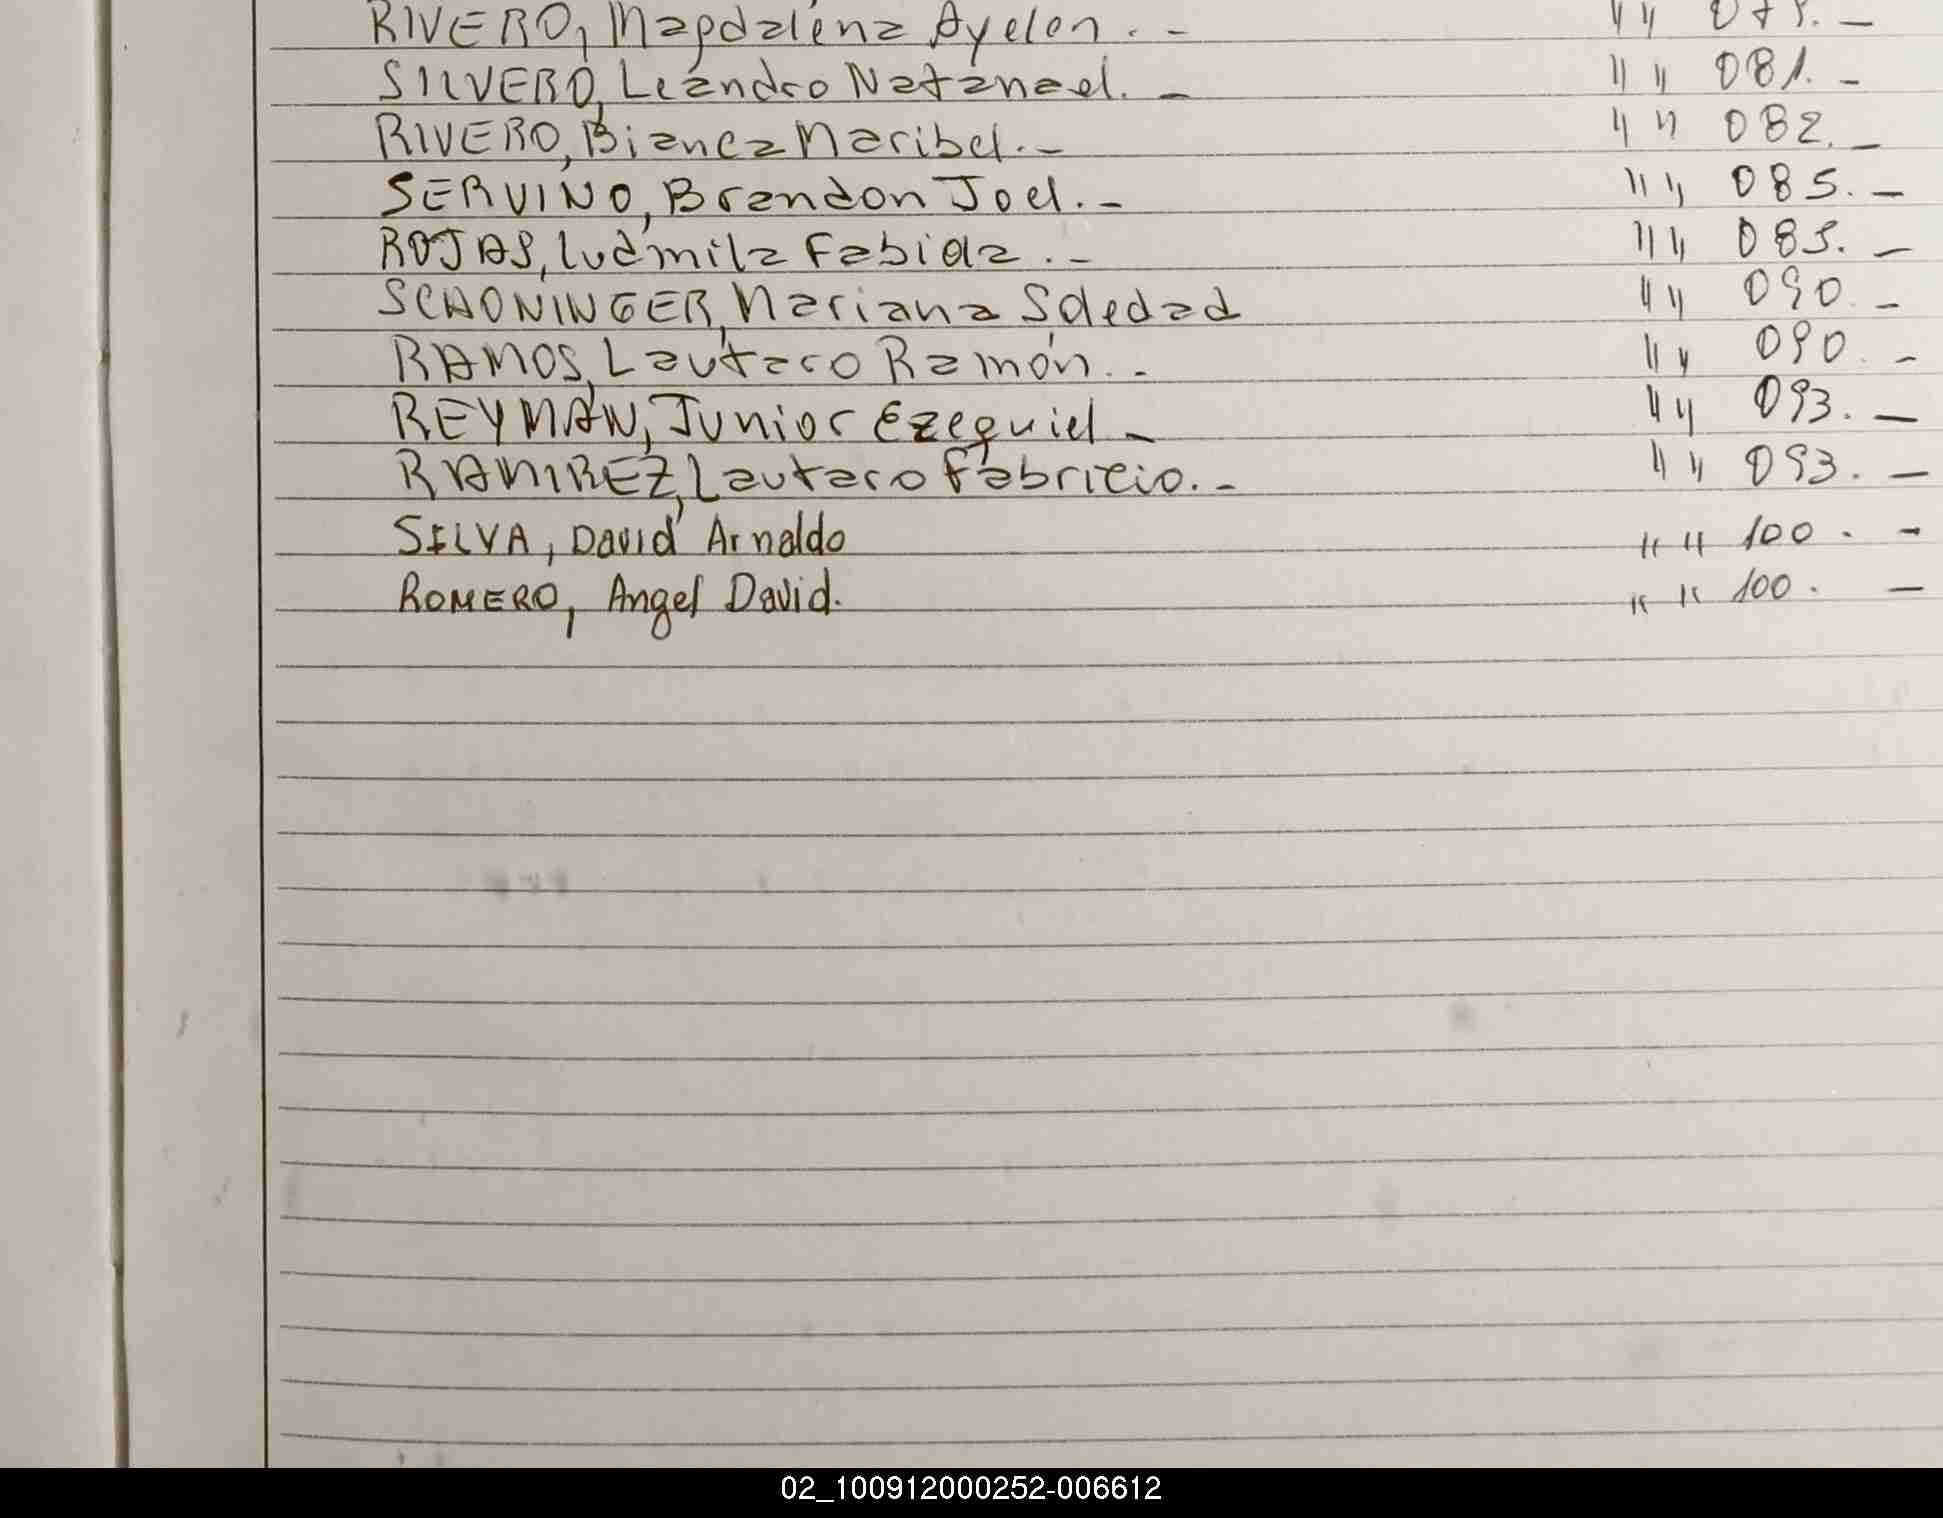 RIVERO, Magdalena Ayelen. - " " 079. -
SILVERO, Leandro Natanael. - " " 081. -
RIVERO, Bianca Maribel. - " " 082. -
SERVINO, Brandon Joel. - " " 085. -
ROJAS, Ludmila Fabiola. - " " 089. -
SCHONINGER, Mariana Soledad " " 090. -
RAMOS, Lautaro Ramón. - " " 090. -
REYMAN, Junior Ezequiel - " " 093. -
RAMIREZ, Lautaro Fabricio. - " " 093. -
SILVA, David Arnaldo " " 100. -
ROMERO, Angel David. " " 100. -
02_100912000252-006612